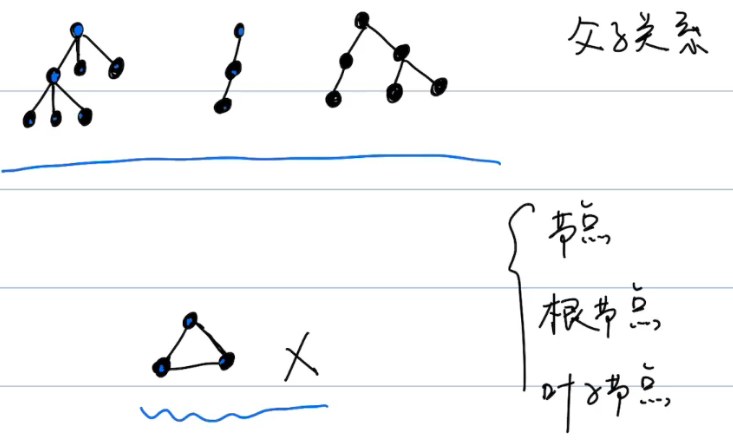 父子关系
节点
根节点
叶子节点